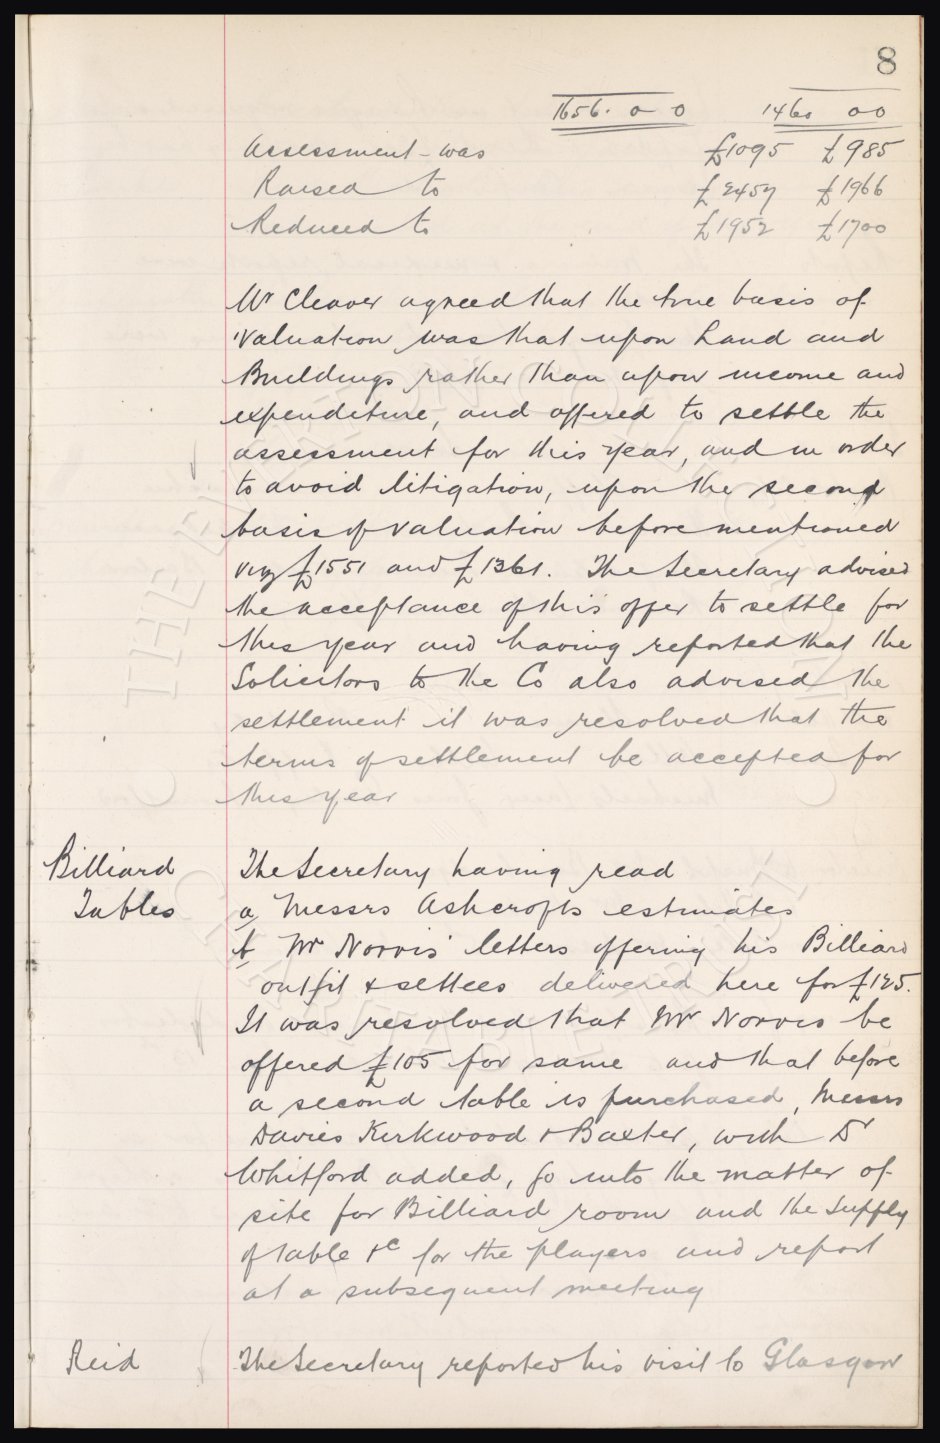 8
1656. 0 0 1460 00
Assessment was £1095 £985
Raised to £2457 £1966
Reduced to £1952 £1700
Mr Cleaver agreed that the true basis of
valuation was that upon Land and
Buildings rather than upon income and
expenditure, and offered to settle the
assessment for this year, and in order
to avoid litigation, upon the second
basis of valuation before mentioned
viz £1551 and £1361. The Secretary advised
the acceptance of this offer to settle for
this year and having reported that the
Solicitors to the Co also advised the
settlement it was resolved that the
terms of settlement be accepted for
this year
Billiard The Secretary having read
Tables a, Messrs Ashcrofts estimates
b, Mr Norris' letters offering his Billiard
outfit & settees delivered here for £125.
It was resolved that Mr Norris be
offered £105 for same and that before
a second table is purchased, Messrs
Davies Kirkwood & Baxter, with Dr
Whitford added, go into the matter of
site for Billiard room and the supply
of table &c for the players and report
at a subsequent meeting
Reid The Secretary reported his visit to Glasgow